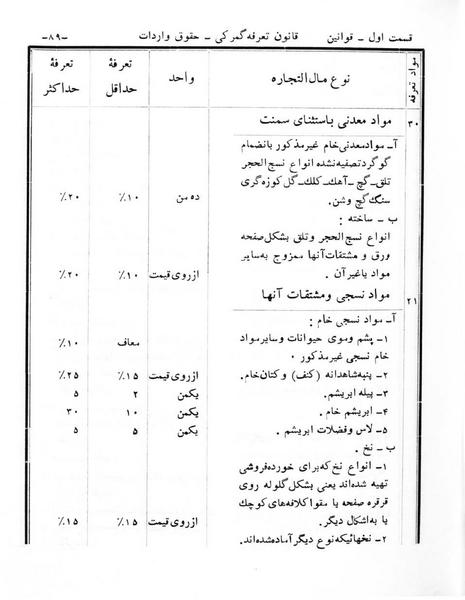 قسمت اول ـ قوانین    قانون تعرفه گمرکی ـ حقوق واردات    -۸۹-
مواد تعرفه    نوع مال‌التجاره    واحد    تعرفهٔ حداقل    تعرفهٔ حداکثر
۳۰    مواد معدنی باستثنای سمنت
آ- مواد معدنی خام غیرمذکور بانضمام
گوگرد تصفیه نشده انواع نسج الحجر
تلق - گچ - آهک - کلک - گل کوزه گری
سنگ گچ وشن.    ده من    ۱۰٪    ۲۰٪
ب - ساخته :
انواع نسج الحجر وتلق بشکل صفحه
ورق و مشتقات آنها ممزوج به سایر
مواد یا غیر آن.    ازروی قیمت    ۱۰٪    ۲۰٪
۲۱    مواد نسجی ومشتقات آنها
آ- مواد نسجی خام :
۱- پشم وموی حیوانات وسایر مواد
خام نسجی غیرمذکور ۰    معاف    ۱۰٪
۲- پنبه شاهدانه (کنف) وکتان خام.    ازروی قیمت    ۱۵٪    ۲۵٪
۳- پیله ابریشم.    یکمن    ۲    ۵
۴- ابریشم خام.    یکمن    ۱۰    ۳۰
۵- لاس وفضلات ابریشم.    یکمن    ۵    ۵
ب - نخ.
۱- انواع نخ که برای خورده فروشی
تهیه شده‌اند یعنی بشکل گلوله روی
قرقره صفحه یا مقوا کلافه های کوچک
یا به اشکال دیگر.    ازروی قیمت    ۱۵٪    ۱۵٪
۲- نخهائیکه نوع دیگر آماده شده‌اند.